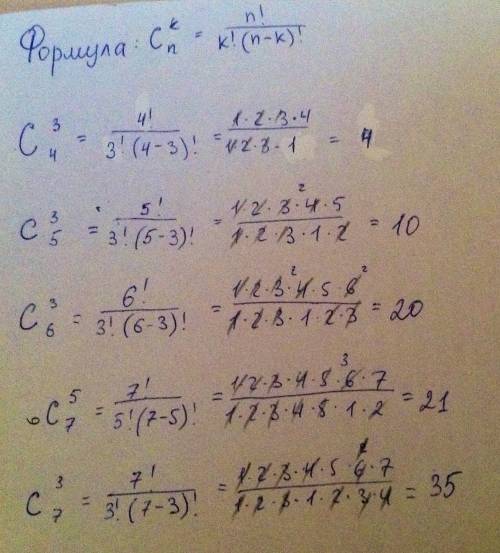 Формула: C_n^k = n! / k!(n-k)!
C_4^3 = 4! / 3!(4-3)! = 1·2·3·4 / 1·2·3·1 = 4
C_5^3 = 5! / 3!(5-3)! = 1·2·3·4²·5 / 1·2·3·1·2 = 10
C_6^3 = 6! / 3!(6-3)! = 1·2·3·4²·5·6² / 1·2·3·1·2·3 = 20
C_7^5 = 7! / 5!(7-5)! = 1·2·3·4·5·6³·7 / 1·2·3·4·5·1·2 = 21
C_7^3 = 7! / 3!(7-3)! = 1·2·3·4·5·6·7 / 1·2·3·1·2·3·4 = 35